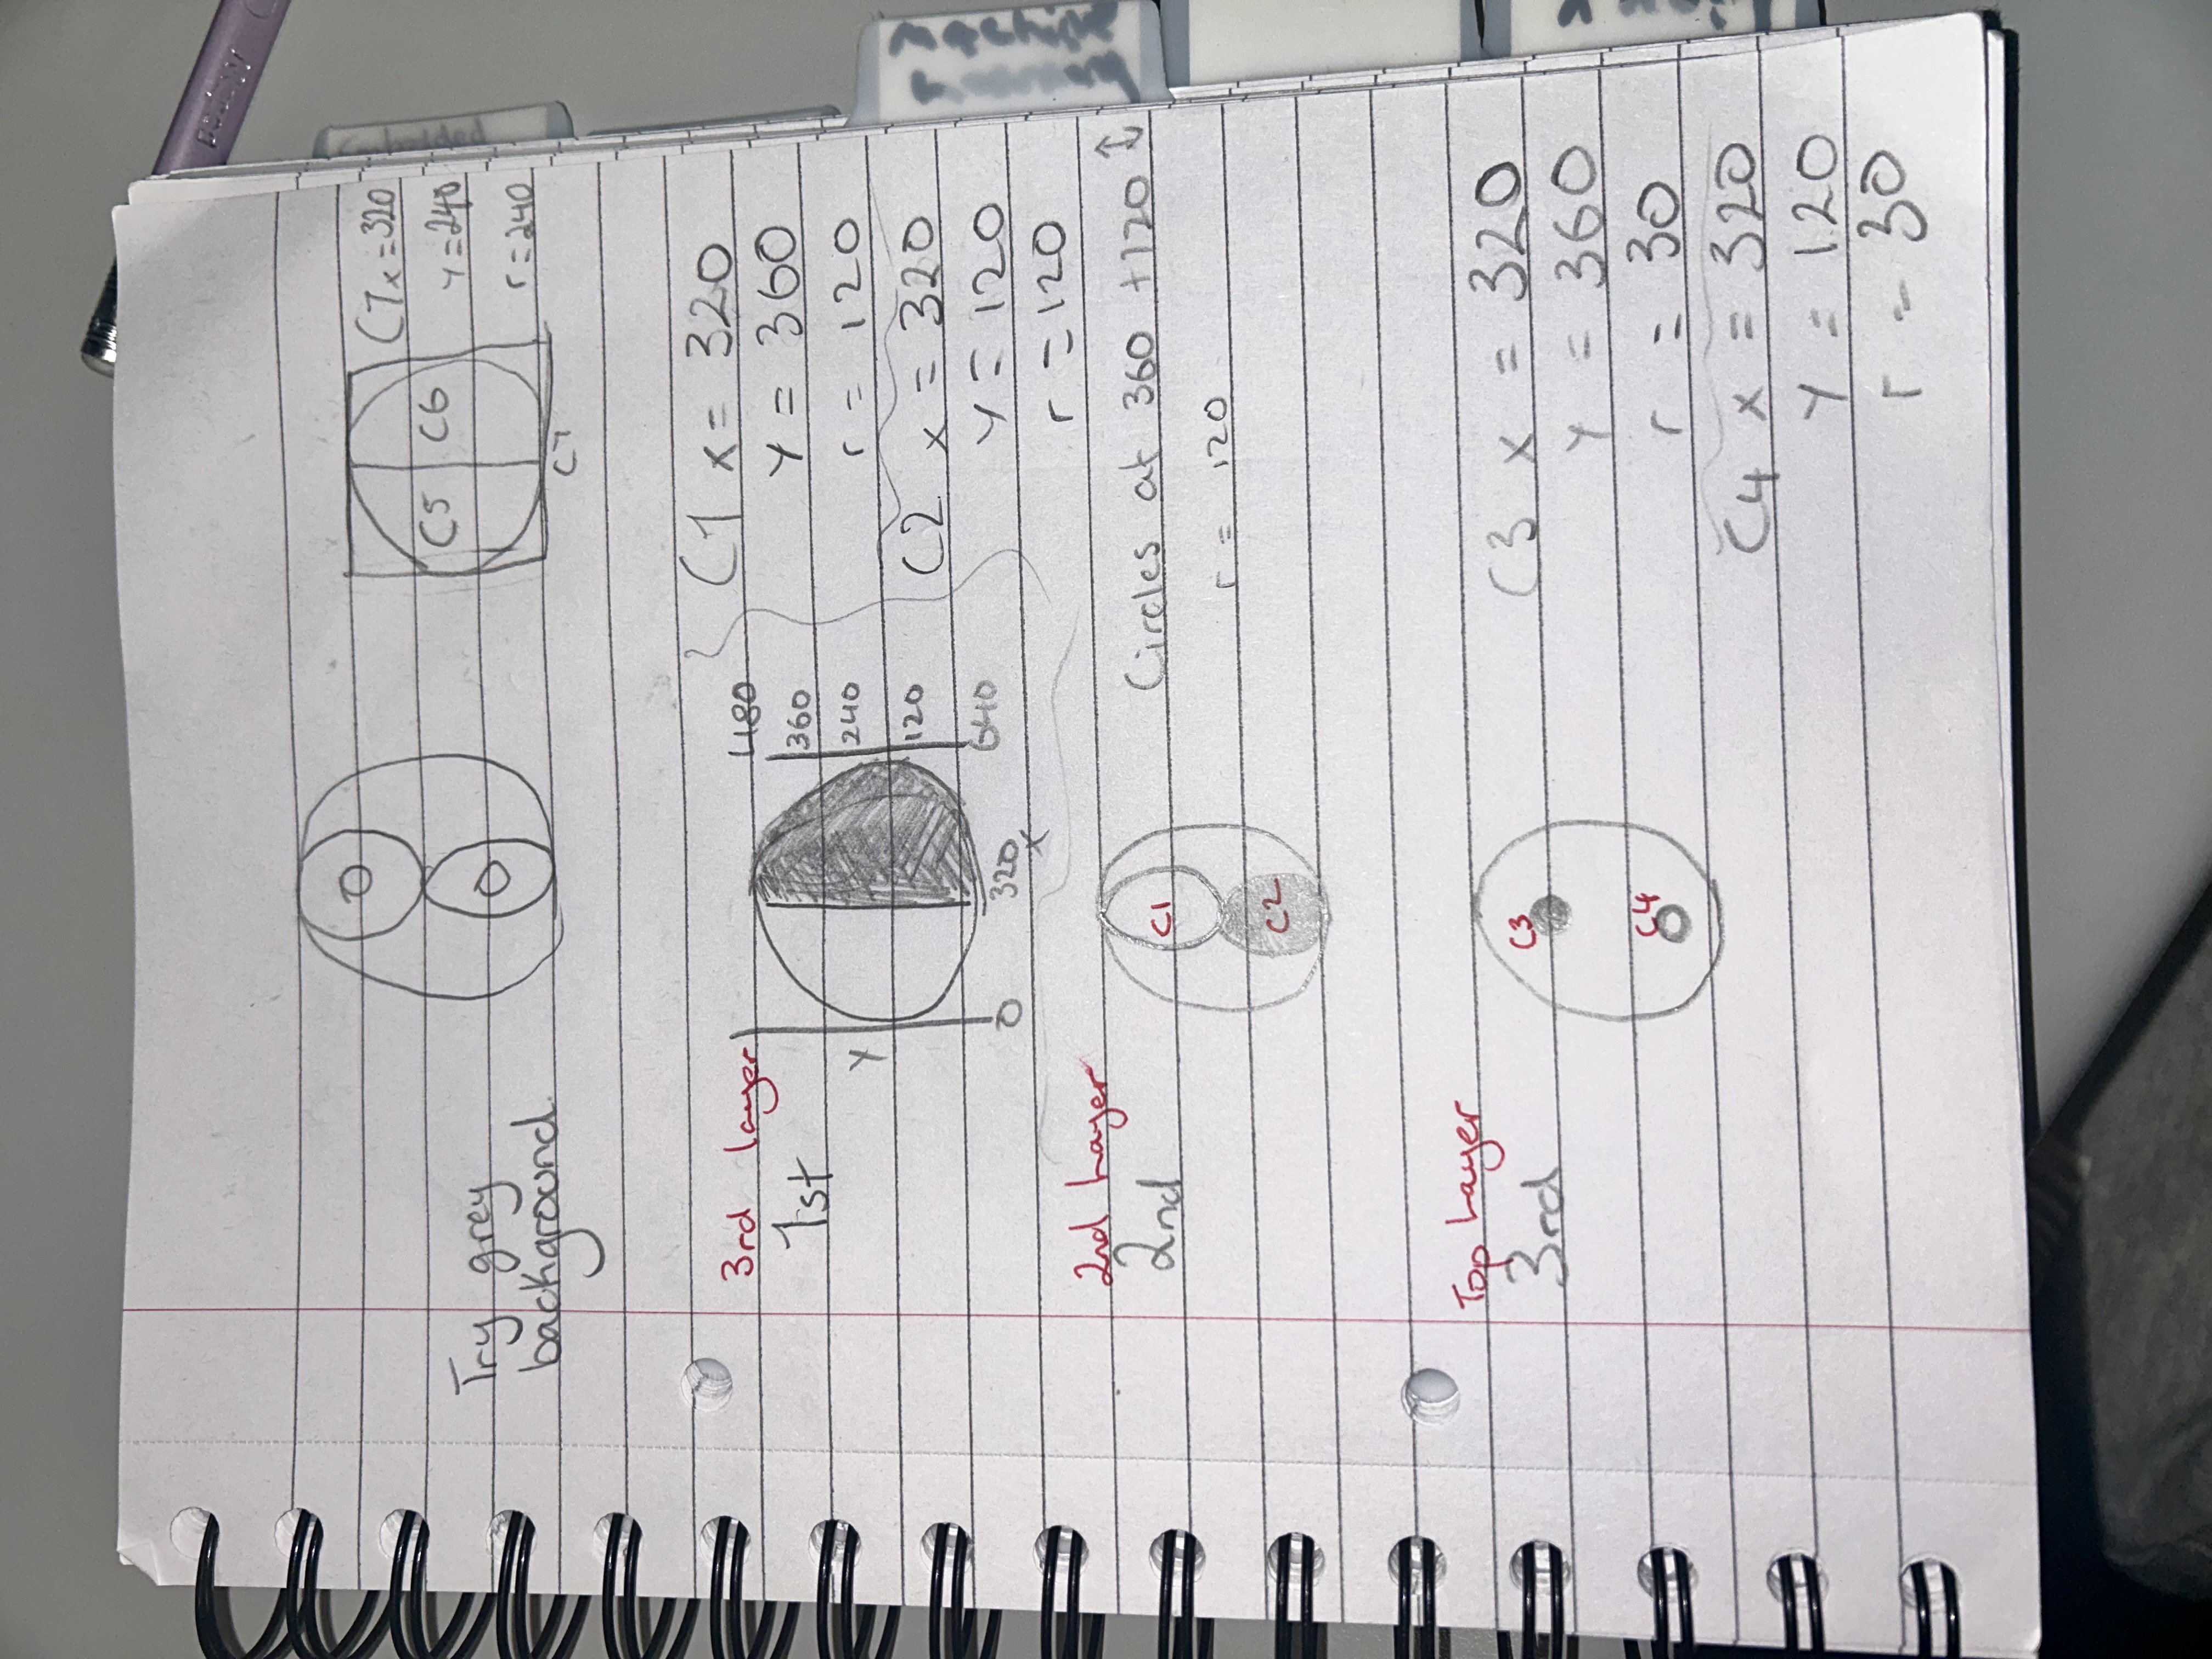 C7 x = 320
y = 240
r = 240
C5 C6
C7
Try grey
background.
3rd layer
1st
Y
480
360
240
120
640
0
320
x
C1 x = 320
y = 360
r = 120
C2 x = 320
y = 120
r = 120
2nd Layer
2nd
C1
C2
Circles at 360 + 120
r = 120
Top Layer
3rd
C3
C4
C3 x = 320
y = 360
r = 30
C4 x = 320
y = 120
r = 30